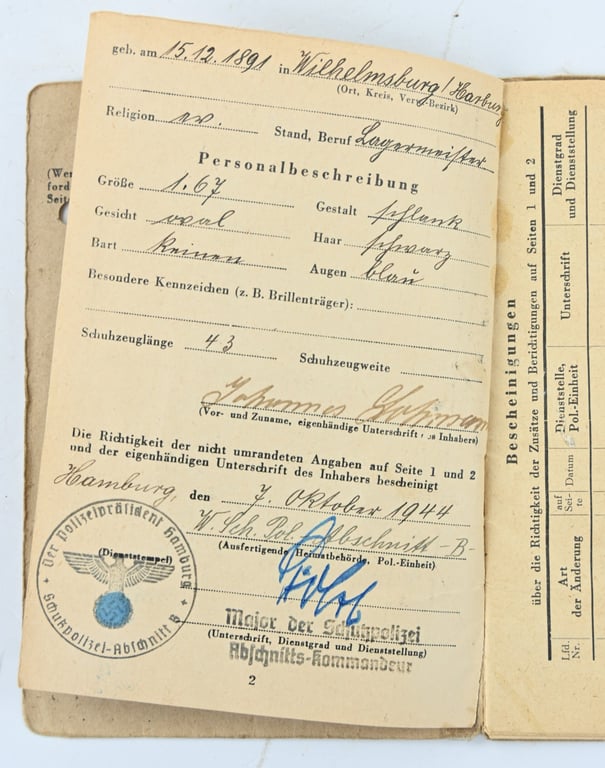 geb. am 15.12.1891 in Wilhelmsburg/Harburg
(Ort, Kreis, Verw.-Bezirk)
Religion ev. Stand, Beruf Lagermeister
Personalbeschreibung
Größe 1.67 Gestalt schlank
Gesicht oval Haar schwarz
Bart keinen Augen blau
Besondere Kennzeichen (z. B. Brillenträger):
Schuhzeuglänge 43 Schuhzeugweite
Johannes
(Vor- und Zuname, eigenhändige Unterschrift Inhabers)
Die Richtigkeit der nicht umrandeten Angaben auf Seite 1 und 2
und der eigenhändigen Unterschrift des Inhabers bescheinigt
Hamburg, den 7. Oktober 1944
W. Sch. Pol. Abschnitt -B-
(Ausfertigende Heimatbehörde, Pol.-Einheit)
Der Polizeipräsident Hamburg
(Dienststempel)
Schutzpolizei-Abschnitt B
Major der Schutzpolizei
(Unterschrift, Dienstgrad und Dienststellung)
Abschnitts-Kommandeur
2
(We
ford
Seit
Bescheinigungen
über die Richtigkeit der Zusätze und Berichtigungen auf Seiten 1 und 2
Lfd. Nr.
Art der Änderung
auf Seite
Datum
Dienststelle, Pol.-Einheit
Unterschrift
Dienstgrad und Dienststellung